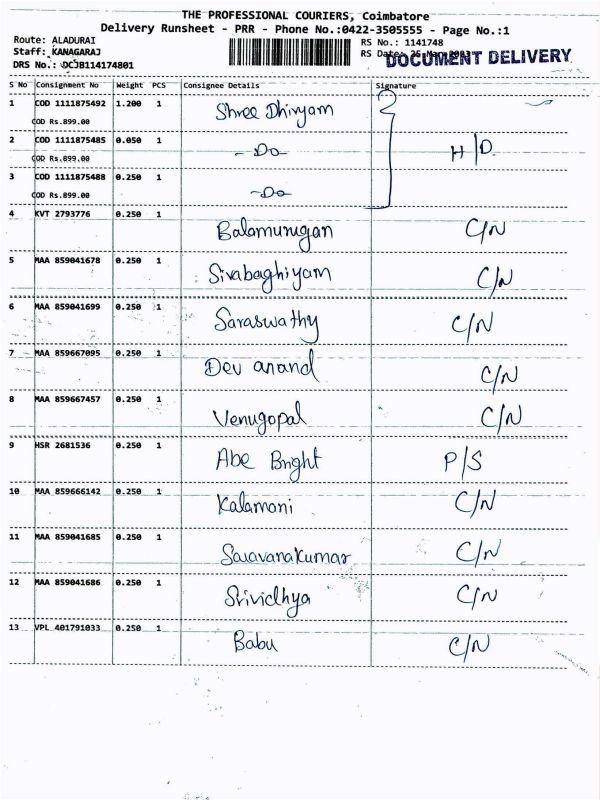 THE PROFESSIONAL COURIERS, Coimbatore
Delivery Runsheet - PRR - Phone No.:0422-3505555 - Page No.:1
Route: ALADURAI
RS No.: 1141748
Staff: KANAGARAJ
RS Date: 25 Mar 2023
DOCUMENT DELIVERY
DRS No.: DCJB114174801
S No Consignment No Weight PCS Consignee Details Signature
1 COD 1111875492 1.200 1 Shree Dhivyam
COD Rs.899.00
2 COD 1111875485 0.050 1 - Do - H/D
COD Rs.899.00
3 COD 1111875488 0.250 1 - Do -
COD Rs.899.00
4 KVT 2793776 0.250 1 Balamurugan C/N
5 MAA 859041678 0.250 1 Sivabaghiyam C/N
6 MAA 859041699 0.250 1 Saraswathy C/N
7 MAA 859667095 0.250 1 Dev anand C/N
8 MAA 859667457 0.250 1 Venugopal C/N
9 HSR 2681536 0.250 1 Abe Bright P/S
10 MAA 859666142 0.250 1 Kalamani C/N
11 MAA 859041685 0.250 1 Saravanakumar C/N
12 MAA 859041686 0.250 1 Srividhya C/N
13 VPL 401791033 0.250 1 Babu C/N